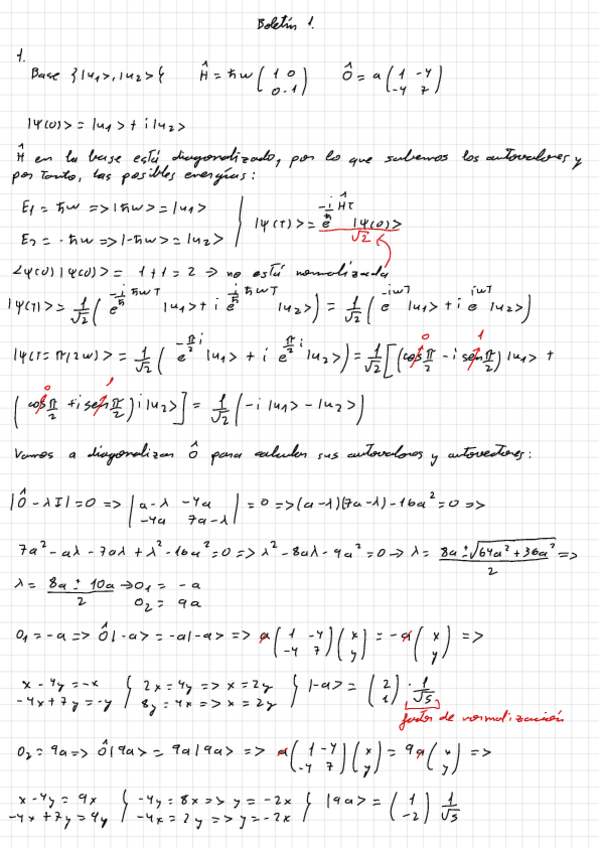 Boletín 1.
1.
Base {|u₁>, |u₂>{ Ĥ = ħw (1 0 / 0 -1) Ô = a (1 -4 / -4 7)
|Ψ(0)> = |u₁> + i|u₂>
Ĥ en la base está diagonalizado, por lo que sabemos los autovalores y
por tanto, las posibles energías:
E₁ = ħw => |ħw> = |u₁>
E₂ = -ħw => |-ħw> = |u₂> } |Ψ(T)> = e^(-i/ħ ĤT) |Ψ(0)> / √2
<Ψ(0)|Ψ(0)> = 1+1 = 2 → no está normalizada
|Ψ(T)> = 1/√2 ( e^(-i/ħ ħwT) |u₁> + i e^(i/ħ ħwT) |u₂> ) = 1/√2 ( e^(-iwT) |u₁> + i e^(iwT) |u₂> )
|Ψ(T=π/2w)> = 1/√2 ( e^(-π/2 i) |u₁> + i e^(π/2 i) |u₂> ) = 1/√2 [ (cos π/2 0 - i sen π/2 1) |u₁> +
( cos π/2 0 + i sen π/2 1 ) i|u₂> ] = 1/√2 (-i|u₁> - |u₂>)
Vamos a diagonalizar Ô para calcular sus autovalores y autovectores:
|Ô - λI| = 0 => |a-λ -4a / -4a 7a-λ| = 0 => (a-λ)(7a-λ) - 16a² = 0 =>
7a² - aλ - 7aλ + λ² - 16a² = 0 => λ² - 8aλ - 9a² = 0 → λ = (8a ± √(64a² + 36a²)) / 2 =>
λ = (8a ± 10a) / 2 → O₁ = -a
O₂ = 9a
O₁ = -a => Ô|-a> = -a|-a> => a (1 -4 / -4 7) (x / y) = -a (x / y) =>
x - 4y = -x
-4x + 7y = -y } 2x = 4y => x = 2y
8y = 4x => x = 2y } |-a> = (2 / 1) · 1/√5
factor de normalización
O₂ = 9a => Ô|9a> = 9a|9a> => a (1 -4 / -4 7) (x / y) = 9a (x / y) =>
x - 4y = 9x
-4x + 7y = 9y } -4y = 8x => y = -2x
-4x = 2y => y = -2x } |9a> = (1 / -2) 1/√5